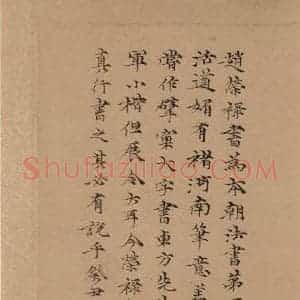 趙榮祿書為本朝法書第
活遒媚有褚河南筆意
嘗作擘窠大字書東方先
軍小楷但展令大耳今榮祿
真行書之其必有說乎癸丑
Shufaziliao.COM